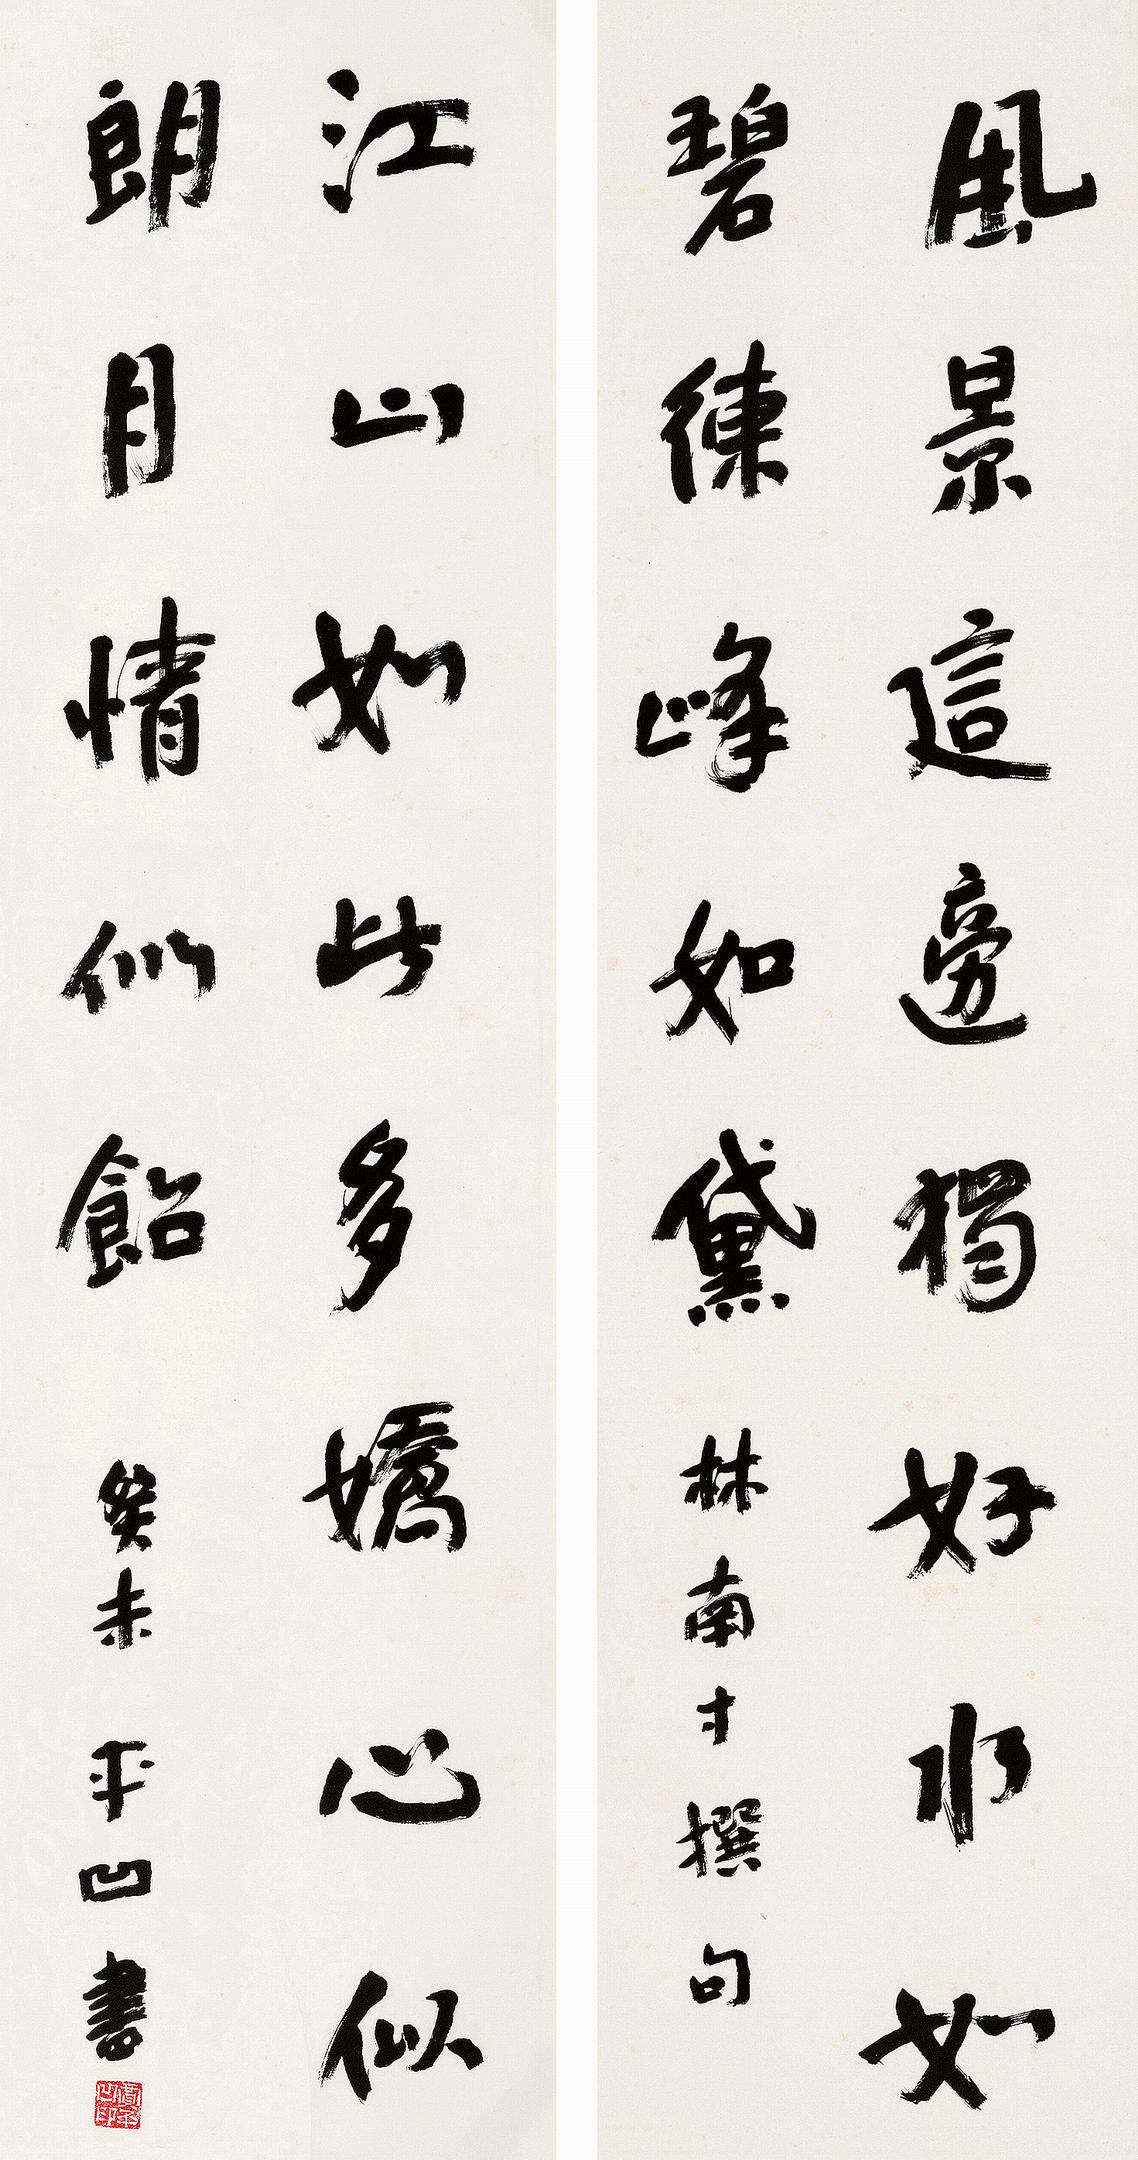 風景這邊獨好水如
碧練峰如黛 林南寸撰句
江山如此多嬌心似
朗月情似飴 癸未 平凹書
賈平凹印